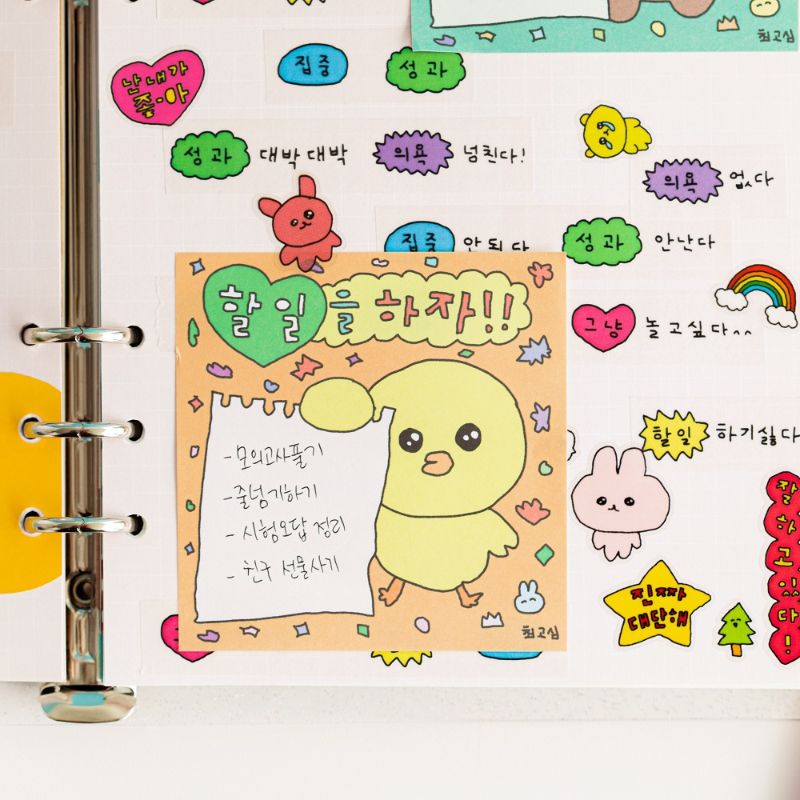 최고심
난 내가
좋·아
집중
성과
성과 대박 대박
의욕 넘친다!
의욕 없다
집중 안된다
성과 안난다
그냥 놀고싶다^^
할일 하기싫다
할 일을 하자!!
-모의고사풀기
-줄넘기하기
-시험오답 정리
-친구 선물사기
최고심
진짜
대단해
잘
하
고
있
다
!